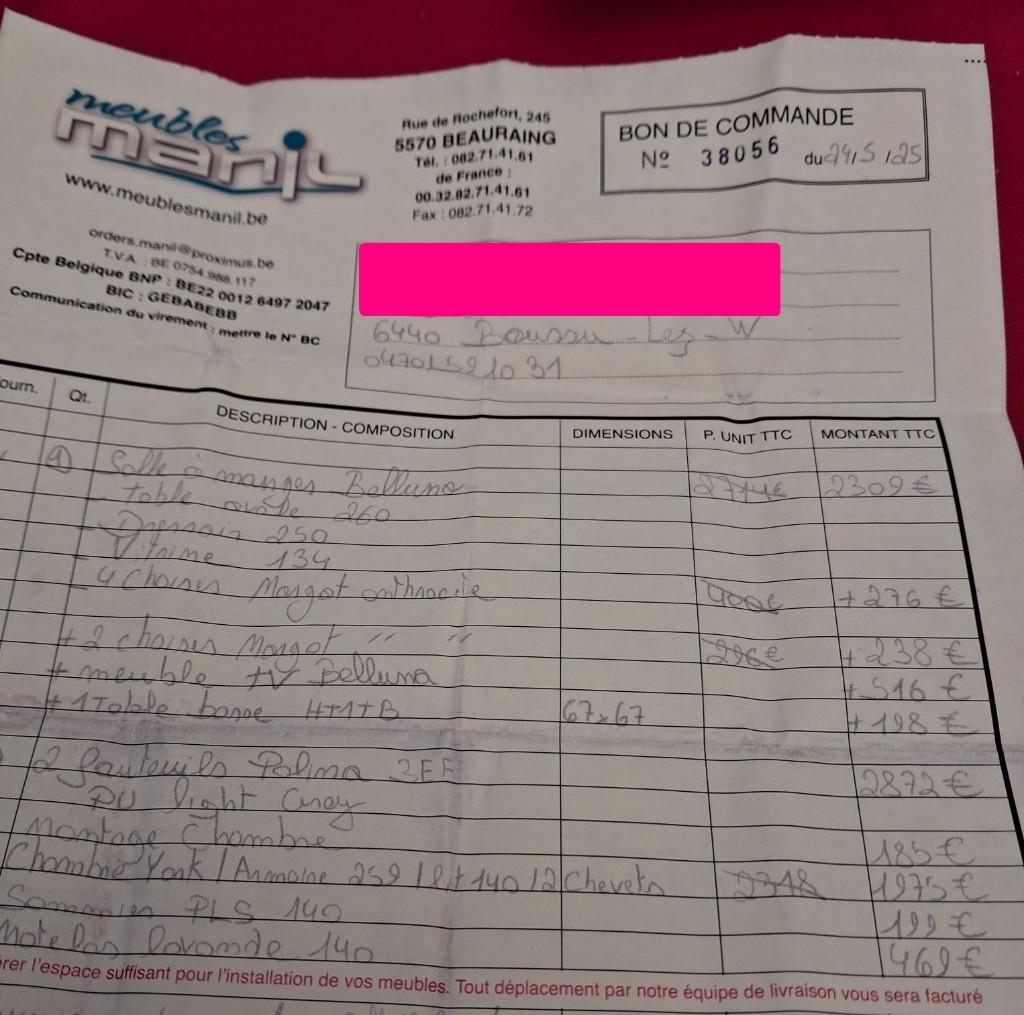 meubles
manil
www.meublesmanil.be
orders.manil@proximus.be
T.V.A. : BE 0754.988.117
Cpte Belgique BNP : BE22 0012 6497 2047
BIC : GEBABEBB
Communication du virement : mettre le N° BC
Rue de Rochefort, 245
5570 BEAURAING
Tél. : 082.71.41.61
de France :
00.32.82.71.41.61
Fax : 082.71.41.72
BON DE COMMANDE
N° 38056 du 24/5/25
6440 Boussu-Lez-W
0470/521031
ourn. Qt. DESCRIPTION - COMPOSITION DIMENSIONS P. UNIT TTC MONTANT TTC
1 Salle à manger Belluna 2774€ 2309€
- table ovale 260
- Dressoir 250
- Vitrine 134
- 4 chaises Margot anthracite 400€ +276€
+ 2 chaises Margot " " 296€ +238€
+ meuble TV Belluna +516€
+ 1 Table basse H+1+B 67x67 +198€
2 fauteuils Palma 3EE 2872€
PU light Gray
Montage Chambre 185€
Chambre York / Armoire 259 / lit 140 / 2 Chevets 2348 1975€
Sommier PLS 140 199€
Matelas lavande 140 469€
rer l'espace suffisant pour l'installation de vos meubles. Tout déplacement par notre équipe de livraison vous sera facturé